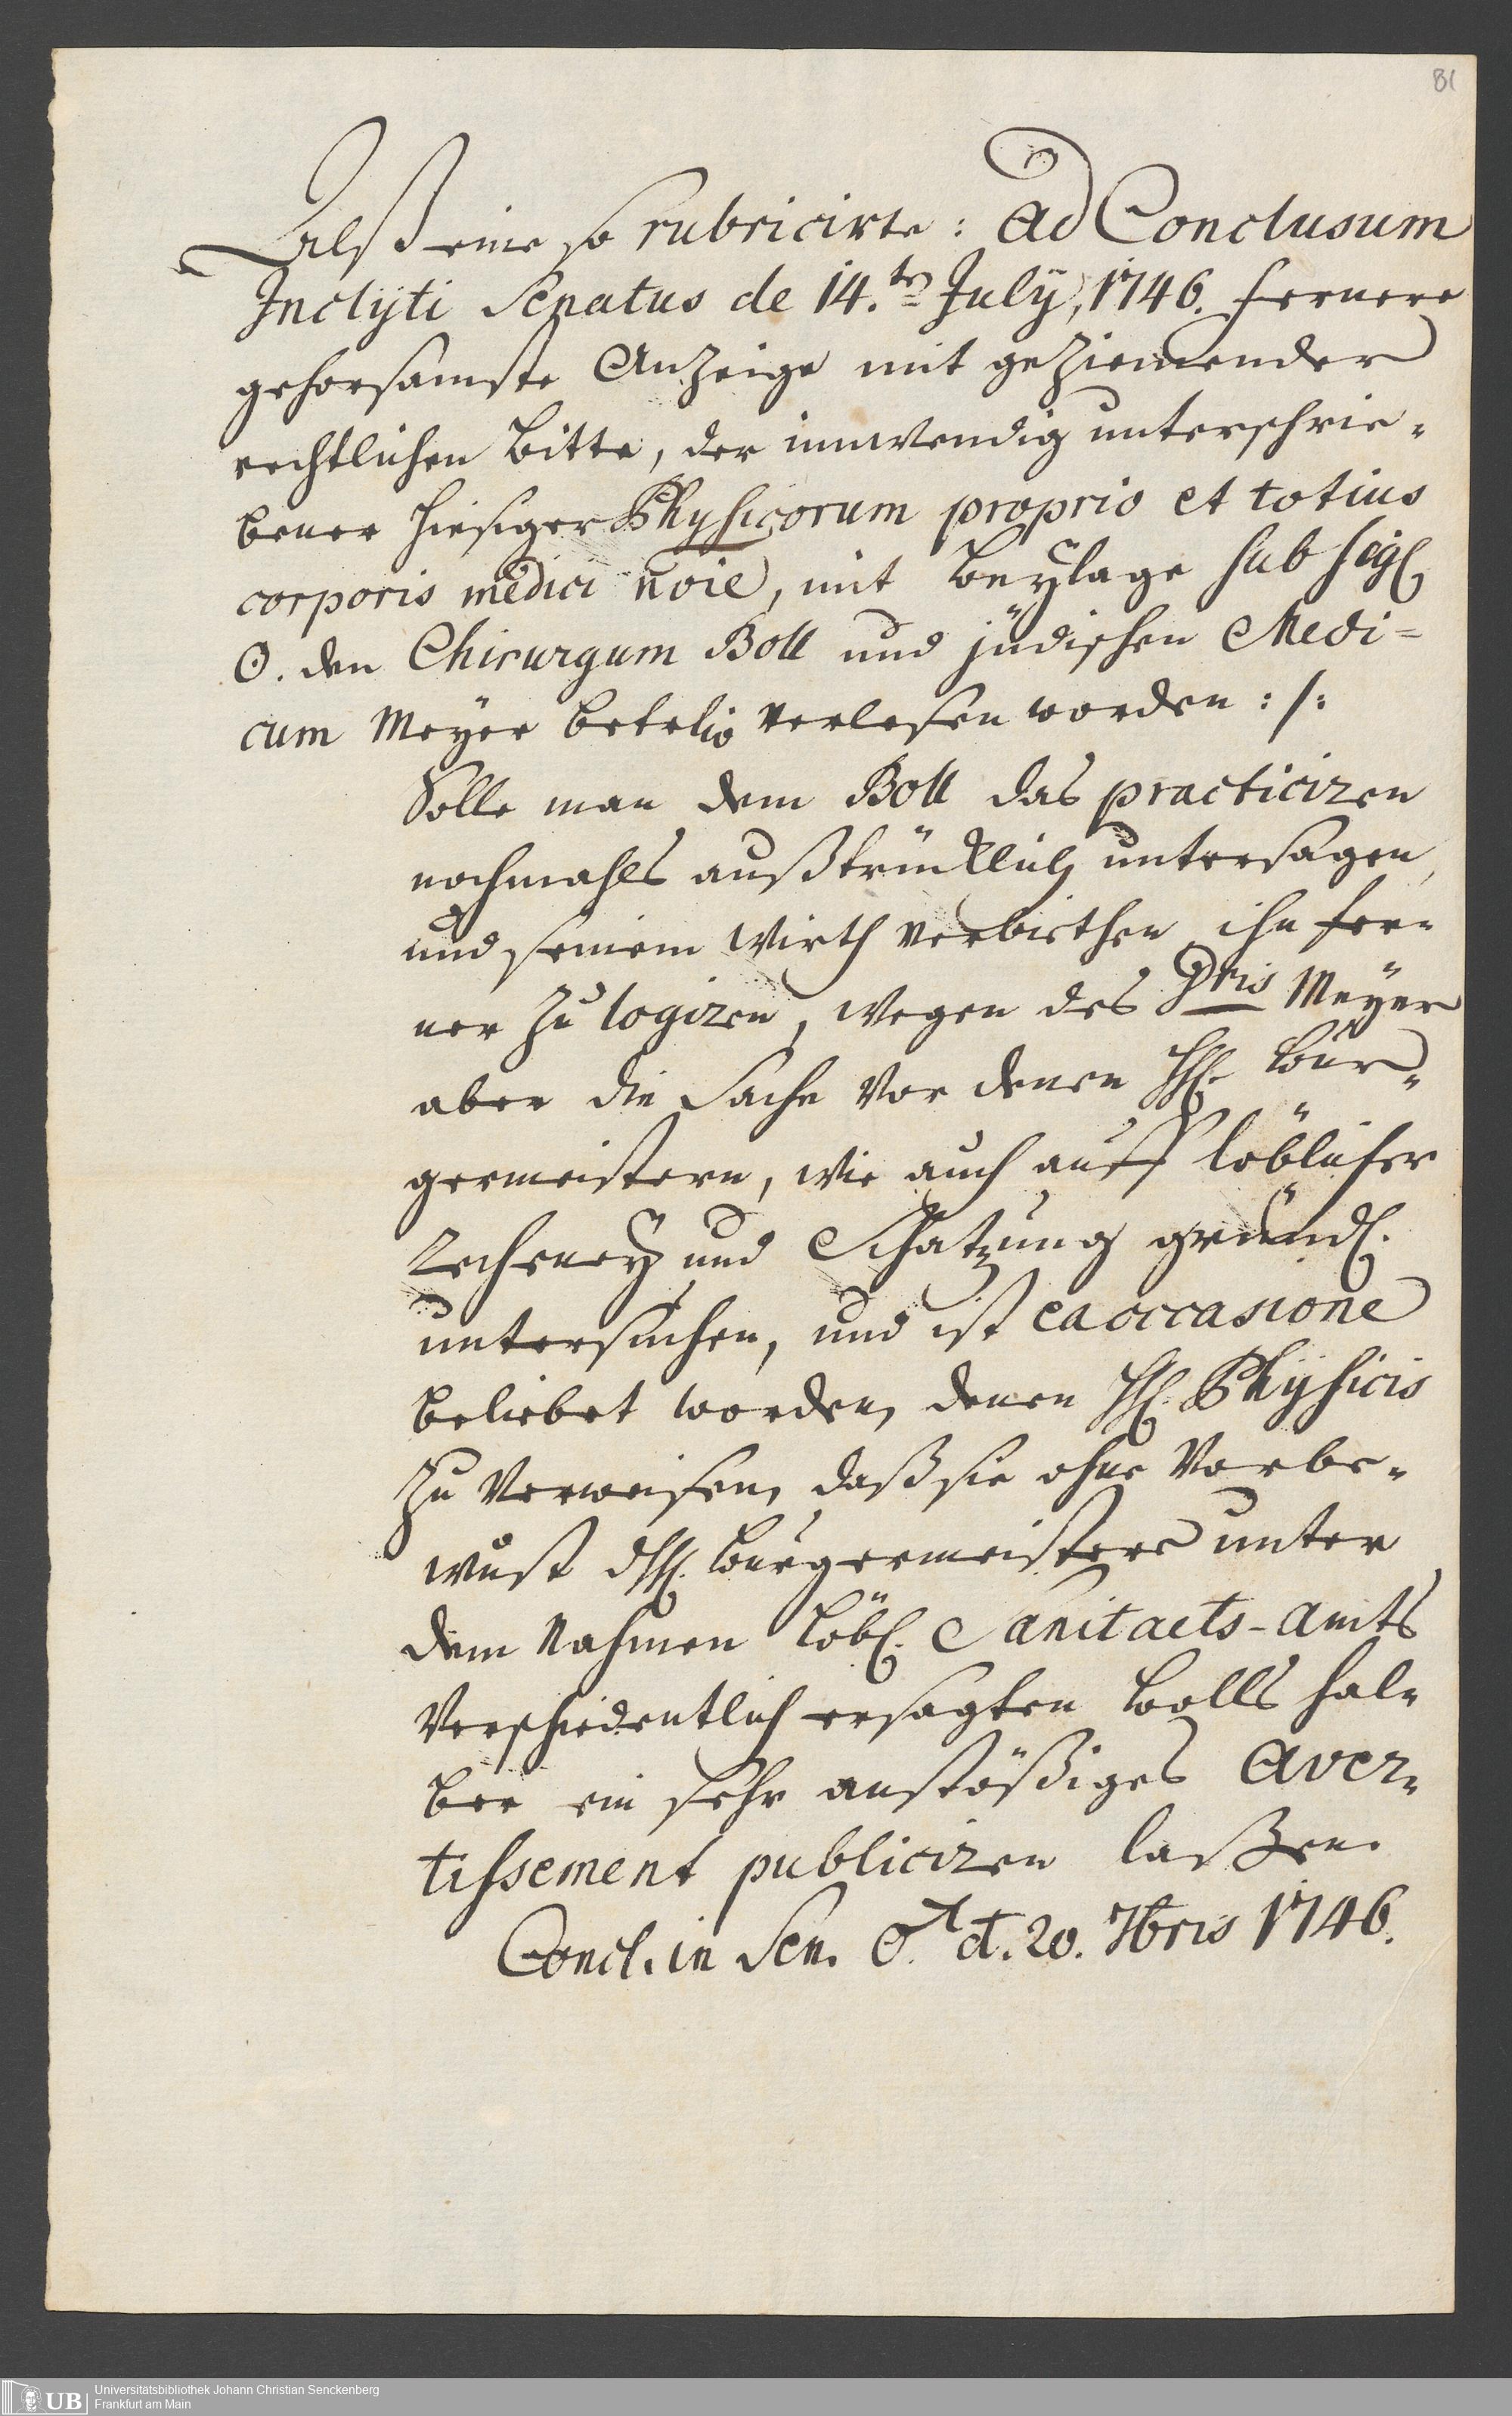 81
Alß eine so rubricirte: Ad Conclusum
Inclÿti Senatus de 14.ten Julÿ, 1746. fernere
gehorsamste Anzeige mit geziemender
rechtlichen Bitte, der innwendig unterschrie-
bener hiesiger Physicorum proprio et totius
corporis medici noie, mit Beÿlage sub sig.
O. den Chirurgum Boll und jüdischen Medi=
cum Meÿer betrl. verlesen worden :/:
Solle man dem Boll das practiciren
nochmahls außtrücklich untersagen,
und seinem Wirth verbiethen ihn fer-
ner zu logiren, wegen des Dris Meÿer
aber die Sache vor denen HH. Bur-
germeistern, wie auch auff löblicher
Recheneÿ und Schatzung gründl.
untersuchen, und ist ea occasione
beliebet worden, denen HH. Phÿsicis
zu verweisen, daß sie ohne Vorbe-
wust dHH. Burgermeistere unter
dem Nahmen löbl. Sanitaets-Amts
verschiedentlich ersagten Bolls hal-
ber ein sehr anstößiges Aver-
tissement publiciren laßen.
Concl. in Sen. d. 20. 7bris 1746.
UB
Universitätsbibliothek Johann Christian Senckenberg
Frankfurt am Main